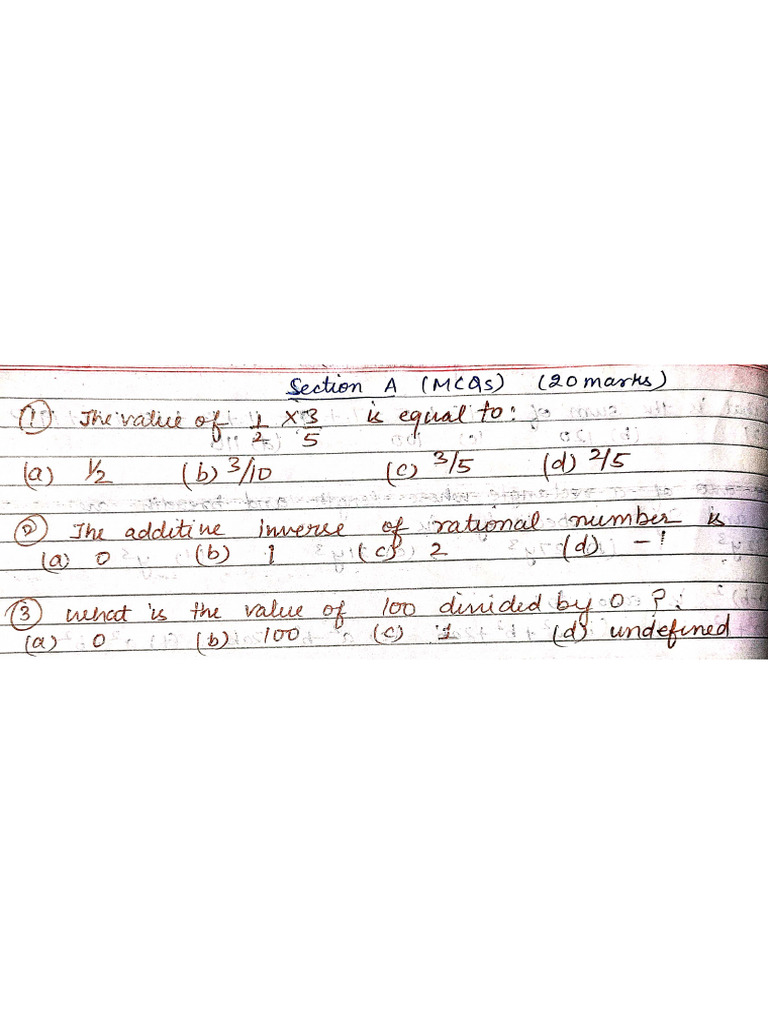 Section A (MCQs) (20 marks)
(1) The value of 1/2 × 3/5 is equal to:
(a) 1/2 (b) 3/10 (c) 3/5 (d) 2/5
(2) The additive inverse of rational number is
(a) 0 (b) 1 (c) 2 (d) -1
(3) what is the value of 100 divided by 0 ?:
(a) 0 (b) 100 (c) 1 (d) undefined